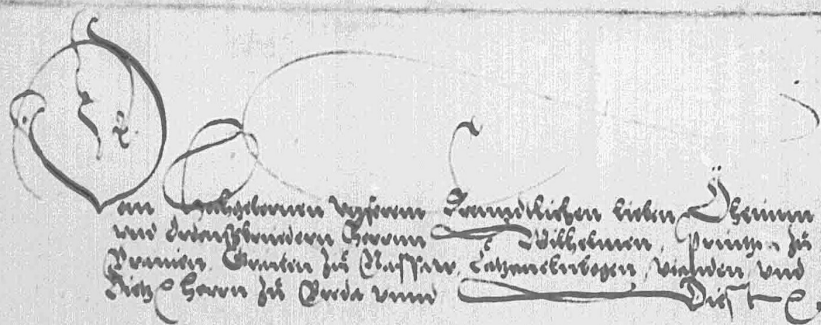 Dem Hochgebornen Vnserem Freundtlichen lieben Öheimen
und Ordenßbruedern Herrnn Wilhelmen, Printzen zů
Uranien, Grauen zů Nassaw, Catzenelnbogen, vianden, vnd
Dietz Herrn zů Breda vnnd Diest